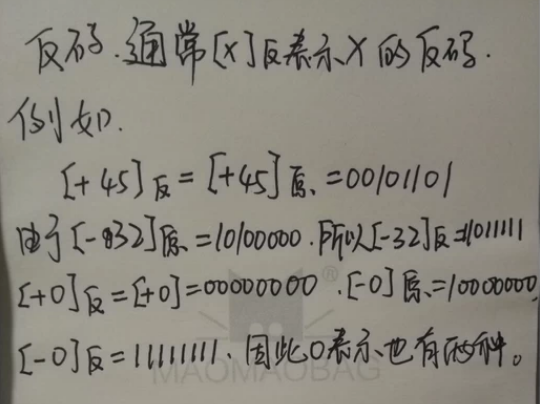 反码.通常[X]反表示X的反码.
例如.
[+45]反=[+45]原.=00101101
由于[-32]原.=10100000.所以[-32]反=1011111
[+0]反=[+0]=00000000.[-0]原.=10000000,
[-0]反=11111111、因此0表示也有两种。
MAOMAOBAG